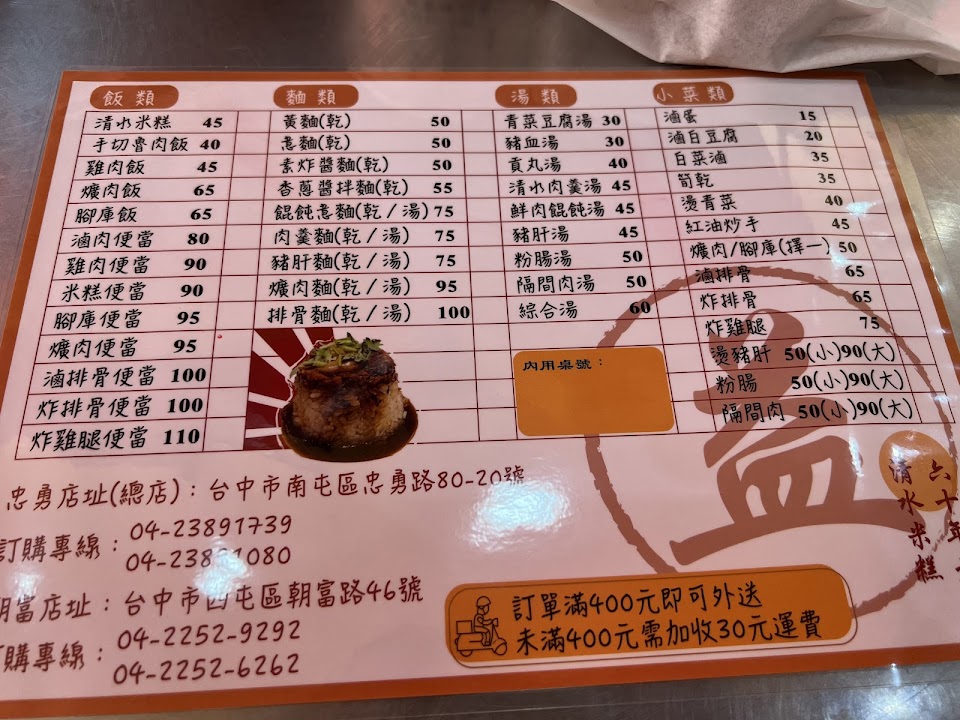 飯類
清水米糕 45
手切魯肉飯 40
雞肉飯 45
爌肉飯 65
腳庫飯 65
滷肉便當 80
雞肉便當 90
米糕便當 90
腳庫便當 95
爌肉便當 95
滷排骨便當 100
炸排骨便當 100
炸雞腿便當 110
麵類
黃麵(乾) 50
意麵(乾) 50
素炸醬麵(乾) 50
香蔥醬拌麵(乾) 55
餛飩意麵(乾/湯) 75
肉羹麵(乾/湯) 75
豬肝麵(乾/湯) 75
爌肉麵(乾/湯) 95
排骨麵(乾/湯) 100
湯類
青菜豆腐湯 30
豬血湯 30
貢丸湯 40
清水肉羹湯 45
鮮肉餛飩湯 45
豬肝湯 45
粉腸湯 50
隔間肉湯 50
綜合湯 60
內用桌號：
小菜類
滷蛋 15
滷白豆腐 20
白菜滷 35
筍乾 35
燙青菜 40
紅油炒手 45
爌肉/腳庫(擇一) 50
滷排骨 65
炸排骨 65
炸雞腿 75
燙豬肝 50(小)90(大)
粉腸 50(小)90(大)
隔間肉 50(小)90(大)
忠勇店址(總店)：台中市南屯區忠勇路80-20號
訂購專線：
04-23891739
04-23891080
朝富店址：台中市西屯區朝富路46號
訂購專線：
04-2252-9292
04-2252-6262
訂單滿400元即可外送
未滿400元需加收30元運費
六十年
清水米糕